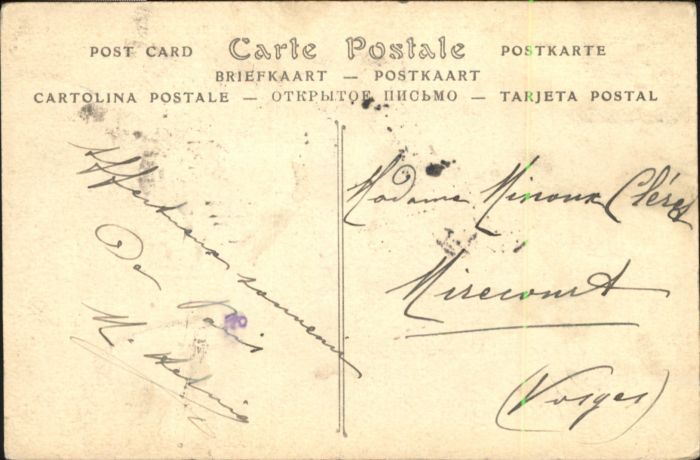 POST CARD Carte Postale POSTKARTE
BRIEFKAART — POSTKAART
CARTOLINA POSTALE — ОТКРЫТОЕ ПИСЬМО — TARJETA POSTAL
Affectueux souvenir
De Paris
Madame Minoux Cléres
Mirecourt
(Vosges)